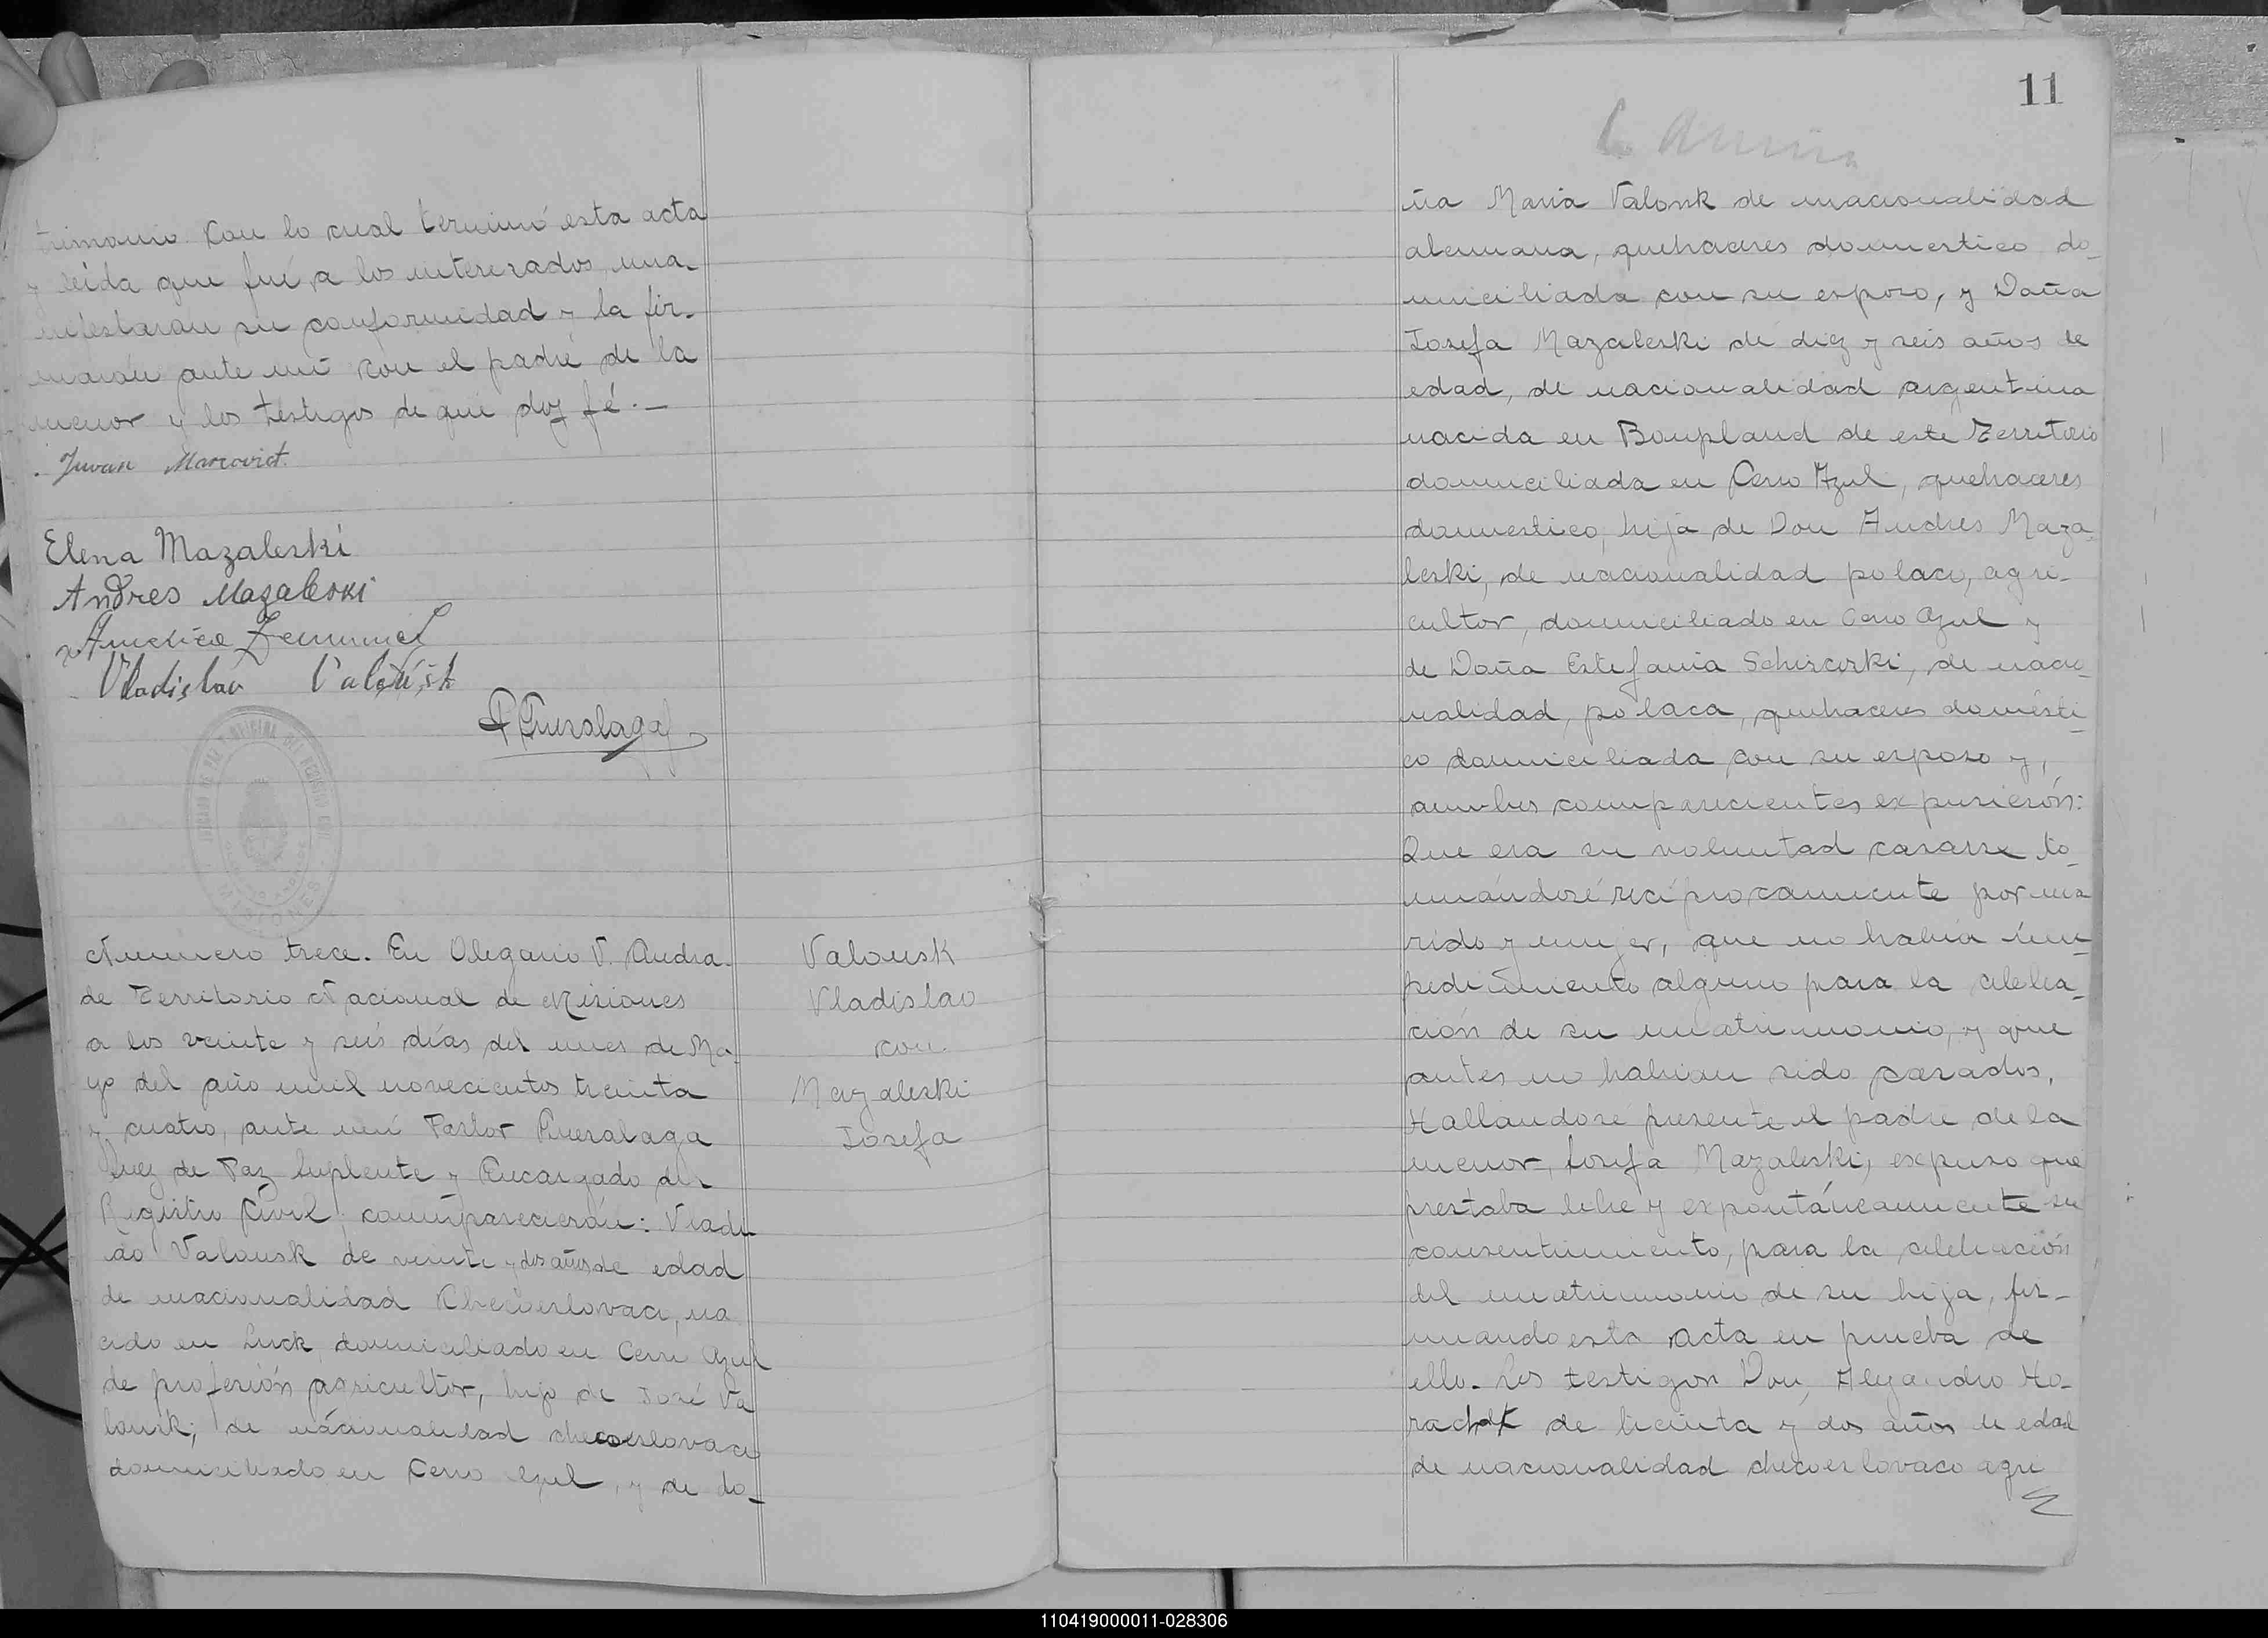 trimonio. Con lo cual terminó esta acta
y leída que fué a los interezados, ma-
nifestaron su conformidad y la fir-
maron ante mí con el padre de la
menor y los testigos de que doy fé.—
Juvan Marcovict.
Elena Mazaleski
Andres Mazaleski
America
Vladislav Valoušk
JUZGADO DE PAZ Y OFICINA DEL REGISTRO CIVIL
MISIONES
Número trece. En Olegario V. Andra-
de Territorio Nacional de Misiones
a los veinte y seis días del mes de Ma-
yo del año mil novecientos treinta
y cuatro, ante mí Pastor
Juez de Paz Suplente y Encargado del
Registro Civil, comparecierón: Vladis
lao Valousk de veinte y dos años de edad
de nacionalidad Checoeslovaco, na
cido en Luck, domiciliado en Cerro Azul
de profesión agricultor, hijo de José Va
lousk; de nácionalidad checoeslovaco
domiciliado en Cerro Azul, y de do-
Valousk
Vladislao
con
Mazaleski
Josefa
11
ña Maria Valonsk de nacionalidad
alemana, quehaceres domestico do-
miciliada con su esposo, y Doña
Josefa Mazaleski de diez y seis años de
edad, de nacionalidad argentina
nacida en Bonpland de este Territorio
domiciliada en Cerro Azul, quehaceres
domestico, hija de Don Andres Maza-
leski, de nacionalidad polaco, agri-
cultor, domiciliado en Cerro Azul y
de Doña Estefania de nacio-
nalidad, polaca, quehaceres domésti-
co domiciliada con su esposo y,
ambos comparecientes expusierón:
Que era su voluntad casarse to-
mándosé reciprocamente por ma
rido y mujer, que no habia im-
pedimiento alguno para la celebra-
ción de su matrimonio, y que
antes no habian sido casados.
Hallandosé presente el padre de la
menor, Josefa Mazaleski, expuso que
prestaba libre y expontáneamente su
consentimiento, para la celebración
del matrimonio de su hija, fir-
mando esta acta en prueba de
ello. Los testigos Don, Alejandro Ho-
de treinta y dos años de edad
de nacionalidad checoeslovaco agri
110419000011-028306